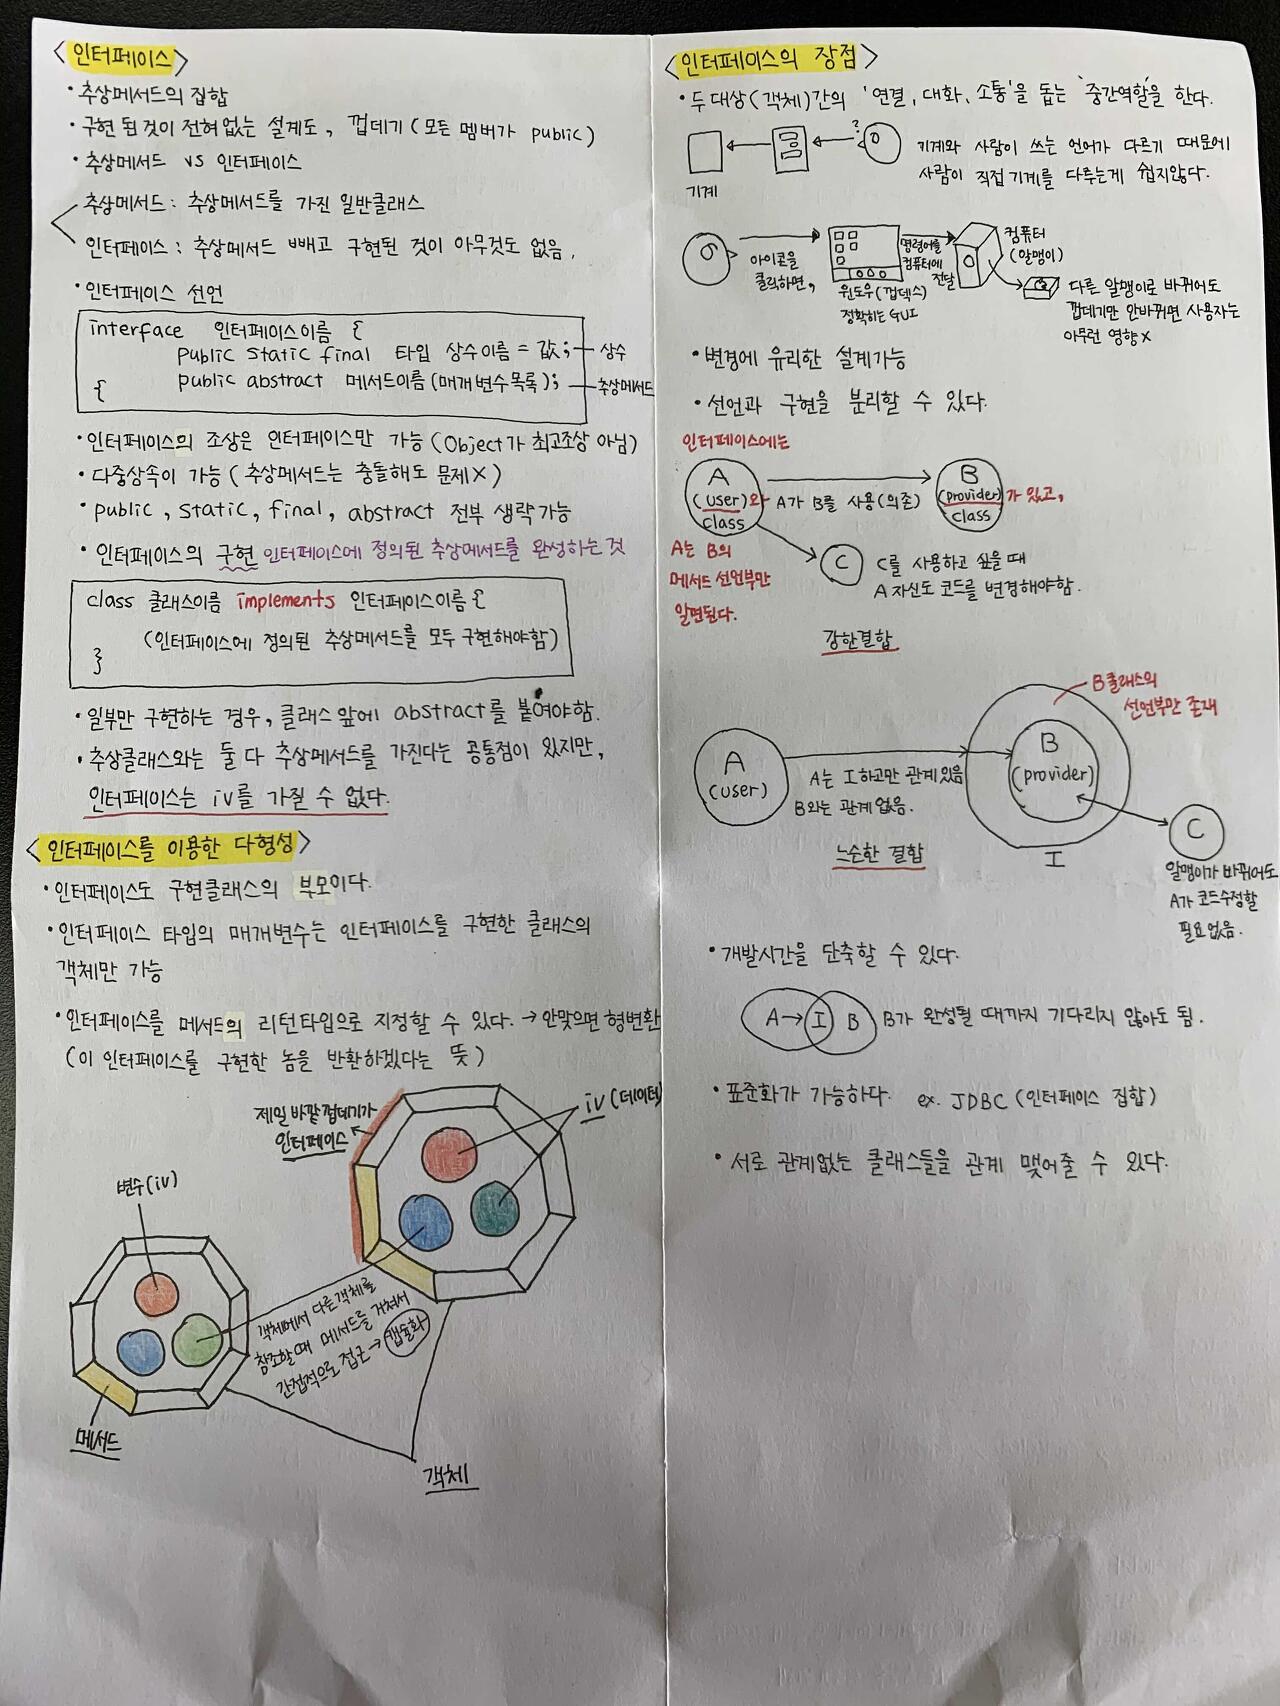 <인터페이스>
• 추상메서드의 집합
• 구현 된 것이 전혀 없는 설계도, 껍데기 (모든 멤버가 public)
• 추상메서드 vs 인터페이스
추상메서드 : 추상메서드를 가진 일반클래스
인터페이스 : 추상메서드 빼고 구현된 것이 아무것도 없음.
• 인터페이스 선언
interface 인터페이스이름 {
public static final 타입 상수이름 = 값; 상수
public abstract 메서드이름(매개변수목록); 추상메서드
{
• 인터페이스의 조상은 인터페이스만 가능 (Object가 최고조상 아님)
• 다중상속이 가능 (추상메서드는 충돌해도 문제X)
• public, static, final, abstract 전부 생략가능
• 인터페이스의 구현 인터페이스에 정의된 추상메서드를 완성하는 것
class 클래스이름 implements 인터페이스이름 {
(인터페이스에 정의된 추상메서드를 모두 구현해야함)
}
• 일부만 구현하는 경우, 클래스 앞에 abstract를 붙여야함.
• 추상클래스와는 둘 다 추상메서드를 가진다는 공통점이 있지만,
인터페이스는 iv를 가질 수 없다.
<인터페이스를 이용한 다형성>
• 인터페이스도 구현클래스의 부모이다.
• 인터페이스 타입의 매개변수는 인터페이스를 구현한 클래스의
객체만 가능
• 인터페이스를 메서드의 리턴타입으로 지정할 수 있다. → 안맞으면 형변환
(이 인터페이스를 구현한 놈을 반환하겠다는 뜻)
제일 바깥 껍데기가
인터페이스
iv (데이터)
변수(iv)
객체에서 다른객체를
참조할때 메서드를 거쳐서
간접적으로 접근 → 캡슐화
메서드
객체
<인터페이스의 장점>
• 두 대상(객체)간의 '연결, 대화, 소통'을 돕는 '중간역할'을 한다.
?
기계
기계와 사람이 쓰는 언어가 다르기 때문에
사람이 직접 기계를 다루는게 쉽지않다.
아이콘을
클릭하면,
윈도우(껍덱스)
정확히는 GUI
명령어를
컴퓨터에
전달
컴퓨터
(알맹이)
다른 알맹이로 바뀌어도
껍데기만 안바뀌면 사용자는
아무런 영향X
• 변경에 유리한 설계가능
• 선언과 구현을 분리할 수 있다.
인터페이스에는
A
(user)와
class
A가 B를 사용(의존)
B
(provider)가 있고,
class
A는 B의
메서드 선언부만
알면된다.
C
C를 사용하고 싶을 때
A 자신도 코드를 변경해야함.
강한결합
B클래스의
선언부만 존재
A
(user)
A는 I하고만 관계있음
B와는 관계없음.
B
(provider)
I
C
느슨한 결합
알맹이가 바뀌어도
A가 코드수정할
필요없음.
• 개발시간을 단축할 수 있다.
A → I B
B가 완성될 때까지 기다리지 않아도 됨.
• 표준화가 가능하다. ex. JDBC (인터페이스 집합)
• 서로 관계없는 클래스들을 관계 맺어줄 수 있다.